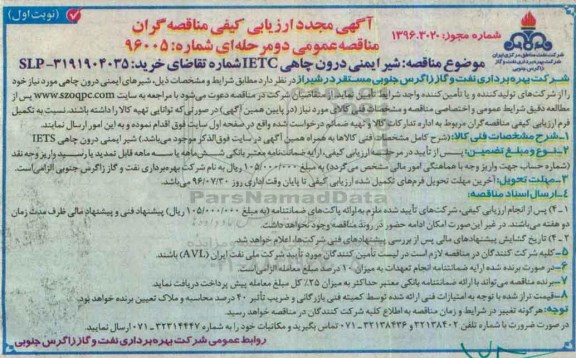 (نوبت اول)
آگهی مجدد ارزیابی کیفی مناقصه گران
شماره مجوز: ۱۳۹۶.۳۰۲۰
مناقصه عمومی دو مرحله ای شماره: ۹۶۰۰۵
موضوع مناقصه: شیر ایمنی درون چاهی IETC شماره تقاضای خرید: SLP-۳۱۹۱۹۰۴۰۳۵
شرکت بهره برداری نفت و گاز زاگرس جنوبی مستقر در شیراز در نظر دارد مطابق شرایط و مشخصات ذیل، شیرهای ایمنی درون چاهی مورد نیاز خود
را از شرکت های تولید کننده و یا تأمین کننده واجد شرایط تأمین نماید. از متقاضیان شرکت در مناقصه دعوت می شود با مراجعه به سایت www.szoqpc.com پس از
مطالعه دقیق شرایط عمومی و اختصاصی مناقصه و مشخصات فنی کالای مورد نیاز (در پایین همین آگهی) در صورتی که توانایی تهیه کالا را داشته باشند، نسبت به تکمیل
فرم ارزیابی کیفی مناقصه گران مربوط به اداره تدارکات کالا و تهیه ضمائم درخواست شده واقع در صفحه اول سایت فوق اقدام نموده و به این امور ارسال نمایند.
۱- شرح مشخصات فنی کالا: (شرح کامل مشخصات فنی کالاها به همراه همین آگهی در سایت فوق الذکر موجود می باشد) شیر ایمنی درون چاهی IETS
۲- نوع و مبلغ تضمین: پس از تأیید در مرحله ارزیابی کیفی، ارایه ضمانت نامه معتبر بانکی شش ماهه یا سه ماهه قابل تمدید یا رسید واریز وجه نقد
(شماره حساب جهت واریز وجه با هماهنگی امور مالی مشخص می گردد) به مبلغ ۱۰۵/۰۰۰/۰۰۰ ریال به نام شرکت بهره برداری نفت و گاز زاگرس جنوبی الزامی است.
۳- مهلت تحویل: آخرین مهلت تحویل فرم های تکمیل شده ارزیابی کیفی تا پایان وقت اداری روز ۹۶/۰۷/۳۰ می باشد.
۴- ارسال اسناد مناقصه:
۴-۱) پس از انجام ارزیابی کیفی، شرکت های تأیید شده ملزم به ارائه پاکت های ضمانتنامه (به مبلغ ۱۰۵/۰۰۰/۰۰۰ ریال) پیشنهاد فنی و پیشنهاد مالی ظرف مدت زمان
دو هفته می باشند. در غیر این صورت امکان ادامه حضور در روند مناقصه وجود نخواهد داشت.
۴-۲) تاریخ گشایش پیشنهادهای مالی پس از بررسی پیشنهادهای فنی شرکت ها، اعلام خواهد شد.
۵- کلیه شرکت کنندگان در مناقصه لازم است در لیست تأمین کنندگان مورد تأیید شرکت ملی نفت ایران (AVL) باشند.
۶- در صورت برنده شدن ارایه ضمانتنامه انجام تعهدات به میزان ۱۰ درصد مبلغ معامله الزامی است.
۷- برنده مناقصه می تواند با ارائه ضمانتنامه بانکی معتبر حداکثر به میزان ۲۵٪ کل مبلغ معامله پیش پرداخت دریافت نماید
۸- قیمت تراز شده با توجه به امتیازات فنی ارائه شده توسط کمیته فنی بازرگانی و ضریب تأثیر ۴۰ درصد محاسبه و ملاک تعیین برنده خواهد بود
توجه: هرگونه تغییر در شرایط و زمان مناقصه به اطلاع کلیه شرکت کنندگان در مناقصه خواهد رسید.
در صورت ضرورت با شماره تلفن ۳۲۱۳۸۴۰۲ و ۳۲۱۳۸۴۳۶-۰۷۱ تماس بگیرید و مکاتبات خود را به شماره ۳۲۳۱۴۴۴۷-۰۷۱ ارسال نمایید
روابط عمومی شرکت بهره برداری نفت و گاز زاگرس جنوبی
ParsNamadData